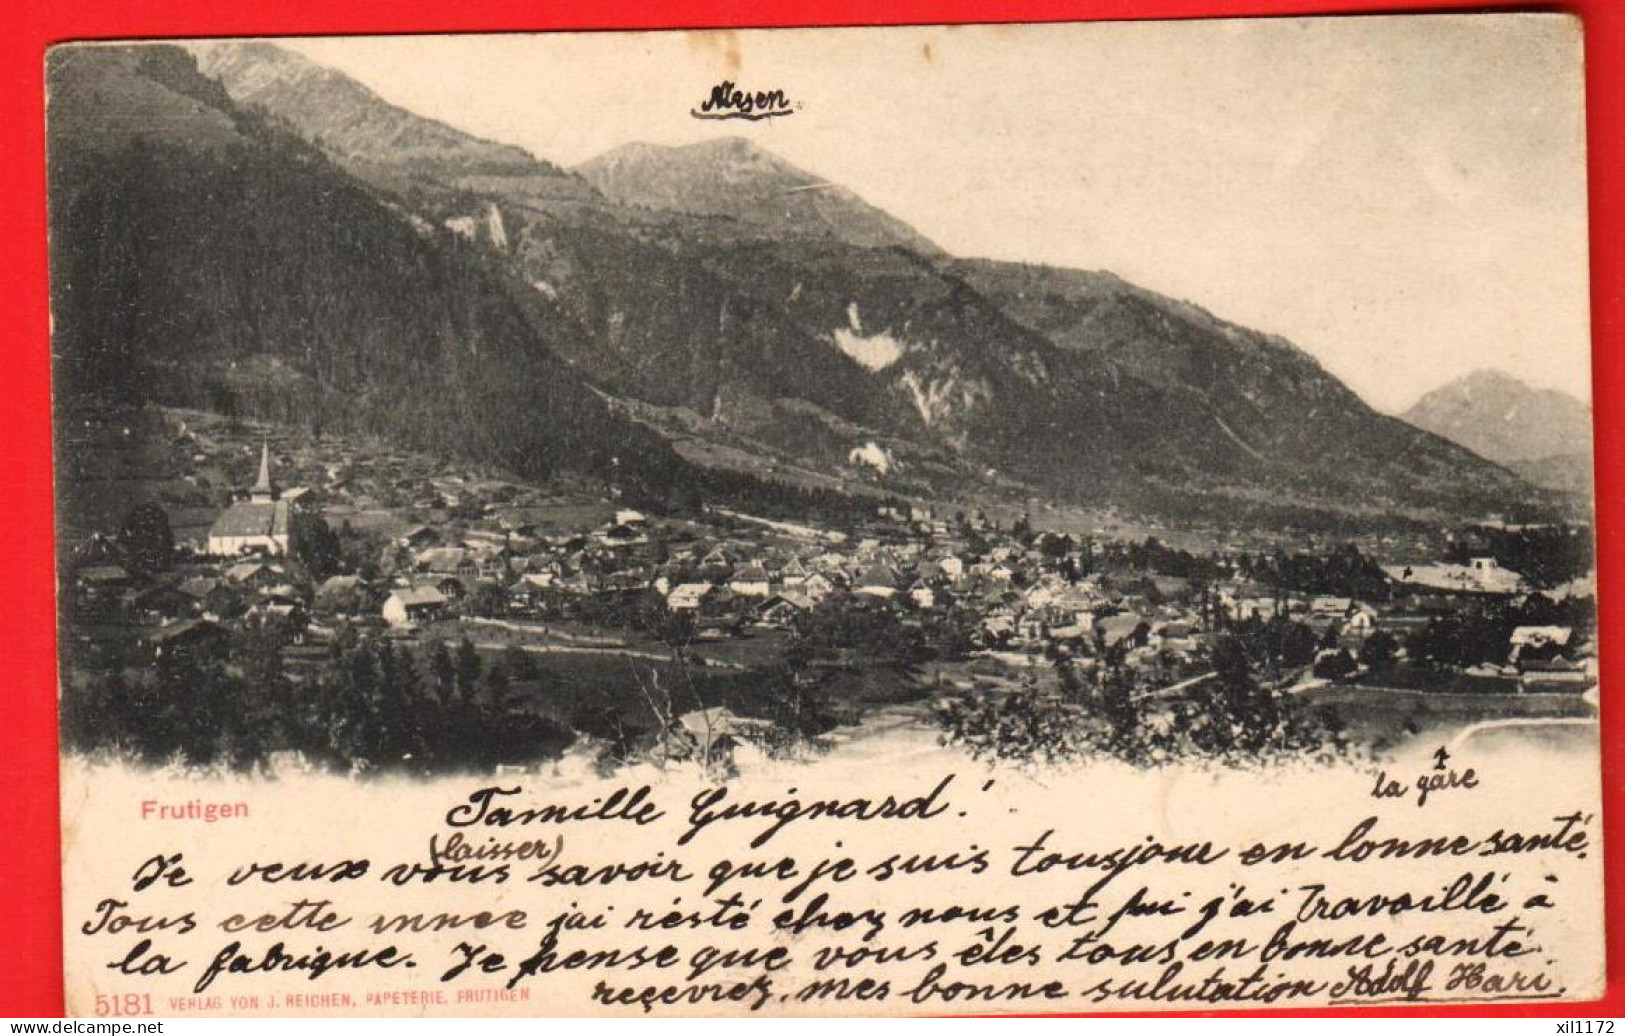 Niesen
la gare
Frutigen
Famille Guignard!
(laisser)
Je veux vous savoir que je suis tousjour en lonne santé.
Tous cette innee jai résté chez nous et j'ai Travaillé à
la fabrique. Je pense que vous êles tous en bonne santé.
reçevrez. mes bonne sulutation Adolf Hari.
5181 VERLAG VON J. REICHEN, PAPETERIE, FRUTIGEN
xil1172